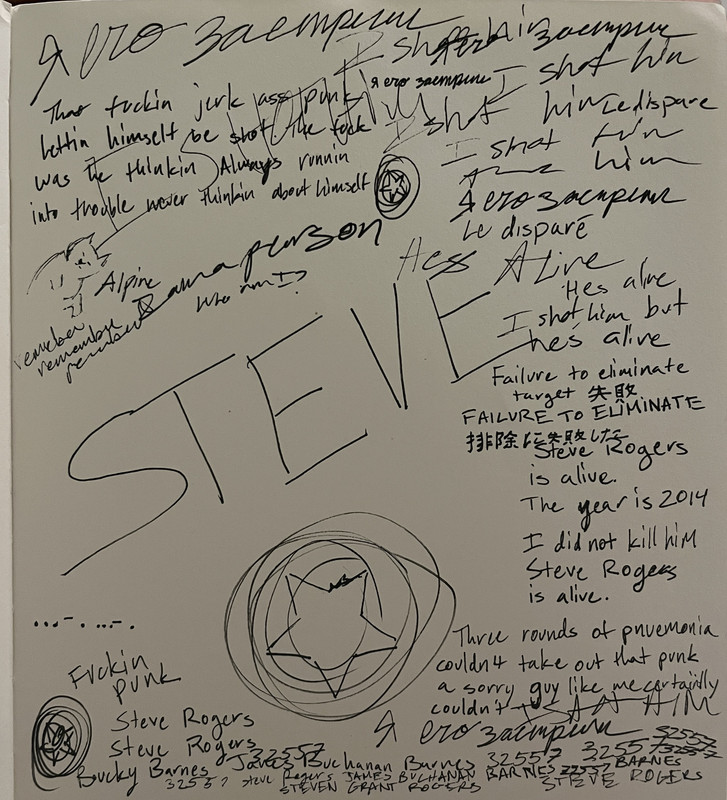 Я его застрелил
I shot him
Я его застрелил
I shot him
That fuckin jerk ass punk
Я его застрелил
lettin himself be shot. The fuck
was he thinkin Always runnin
into trouble never thinkin about himself
I SHOT HIM
I shot him
Le dispare
I shot him
him
Я его застрелил
Le disparé
Alpine
I am a person
who am I?
remember
remember
remember
Hes Alive
Hes alive
I shot him but
he's alive
STEVE
Failure to eliminate
target 失敗
FAILURE TO ELIMINATE
排除に失敗した
Steve Rogers
is alive.
The year is 2014
I did not kill him
Steve Rogers
is alive.
...-.--.
Three rounds of pnuemonia
couldn't take out that punk
a sorry guy like me certainly
couldn't
Fuckin
punk
Я его застрелил
Steve Rogers
Steve Rogers
32557
Bucky Barnes James Buchanan Barnes 32557 32557 32557
32557 Steve Rogers JAMES BUCHANAN BARNES 32557 BARNES
STEVEN GRANT ROGERS STEVE ROGERS